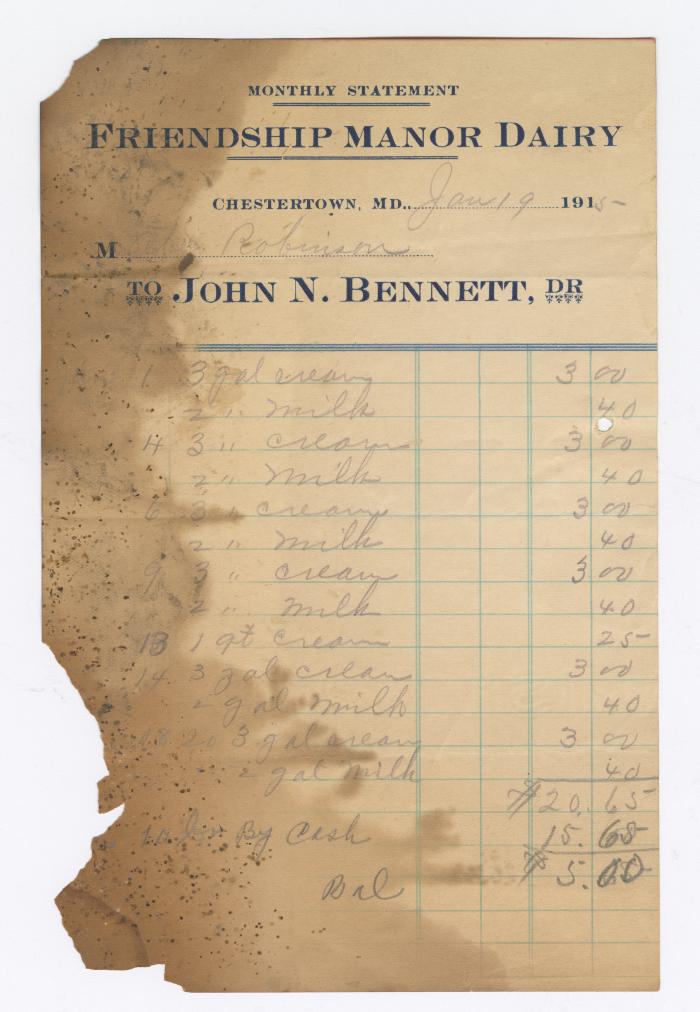 MONTHLY STATEMENT
FRIENDSHIP MANOR DAIRY
CHESTERTOWN, MD., Jan 19 1915
M Robinson
TO JOHN N. BENNETT, DR
1 3 gal cream 3 00
2 " milk 40
4 3 " cream 3 00
2 " Milk 40
6 3 " cream 3 00
2 " milk 40
9 3 " cream 3 00
2 " milk 40
13 1 qt cream 25
14 3 gal cream 3 00
2 gal milk 40
18 3 gal cream 3 00
2 gal milk 40
$20.65
By Cash 15.65
Bal $5.00